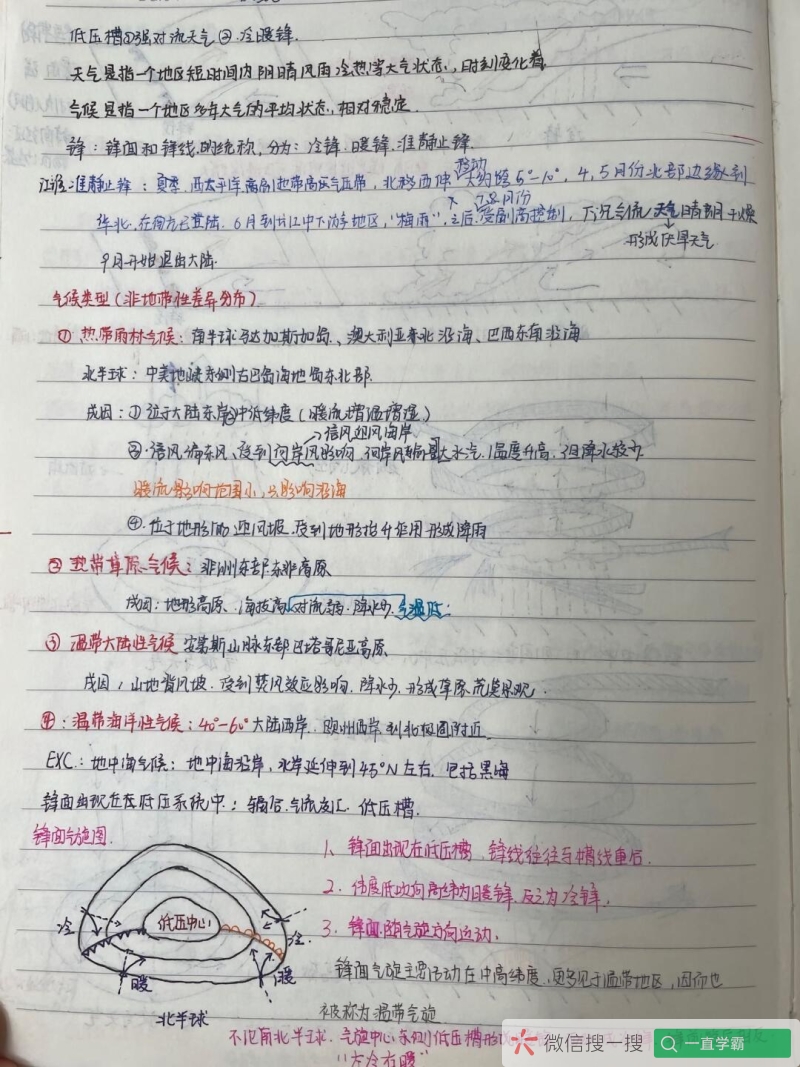 低压槽①强对流天气②冷暖锋.
天气是指一个地区短时间内阴晴风雨冷热等大气状态,时刻变化着
气候是指一个地区多年大气的平均状态,相对稳定.
锋:锋面和锋线的统称,分为:冷锋.暖锋.准静止锋.
江淮准静止锋:夏季.西太平洋高副热带高压气压带,北移西伸 大约跨5°-10°,4,5月份北部边缘到
移动
华北.在南方已登陆.6月到长江中下游地区,"梅雨",之后受副高控制,下沉气流天气晴朗干燥
7,8月份
形成伏旱天气
9月开始退出大陆.
气候类型(非地带性差异分布)
① 热带雨林气候:南半球马达加斯加岛、澳大利亚东北沿海、巴西东南沿海
北半球:中美地峡东侧古巴岛海地岛东北部.
成因:①位于大陆东岸②中低纬度(暖流增温增湿)
信风迎风海岸
③.信风偏东风、受到向岸风影响,向岸风大水气,温度升高,但降水较少
暖流影响范围小,只影响沿海
④.位于地形的迎风坡.受到地形抬升作用形成降雨
② 热带草原气候:非洲东部东非高原
成因:地形高原、海拔高,对流弱.降水少.气温低:
③ 温带大陆性气候 安第斯山脉东部巴塔哥尼亚高原.
成因:山地背风坡.受到焚风效应影响,降水少,形成草原荒漠景观.
④:温带海洋性气候:40°-60°大陆西岸.欧洲西岸到北极圈附近.
EXC.:地中海气候:地中海沿岸,北岸延伸到45°N左右.包括黑海
锋面出现在在低压系统中:辐合.气流交汇.低压槽.
锋面气旋图.
1、锋面出现在低压槽 锋线往往与槽线重合.
2.纬度低吹向高纬为暖锋.反之为冷锋.
3.锋面随气旋方向运动.
低压中心
冷
冷.
暖
暖
北半球
锋面气旋主要活动在中高纬度.更多见于温带地区,因而也
被称为温带气旋
不论南北半球.气旋中心东侧低压槽形
"左冷右暖"
微信搜一搜
一直学霸